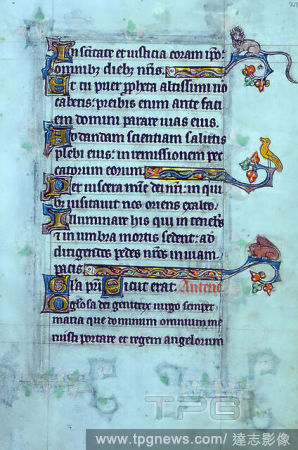 In sc̄itate et iusticia coram ip̄o:
omnibȝ diebȝ nr̄is.
Et tu puer ꝓpheta altissimi uo
caberis: preibis enim ante faci
em domini parare uias eius.
Ad dandam scientiam salutis
plebi eius: in remissionem pec
catorum eorum
Per uiscera mīe dei nr̄i: in qui
bȝ uisitauit nos oriens ex alto.
Illuminare his qui in teneb̄s
et in umbra mortis sedent: ad
dirigendos pedes nr̄os in uiam
pacis
Gl̄a pr̄i Sicut erat. Anten̄
Gloriosa dei genitrix uirgo semper
maria que dominum omnium me
ruisti portare et regem angelorum
TPG
www.tpgnews.com/ 達志影像